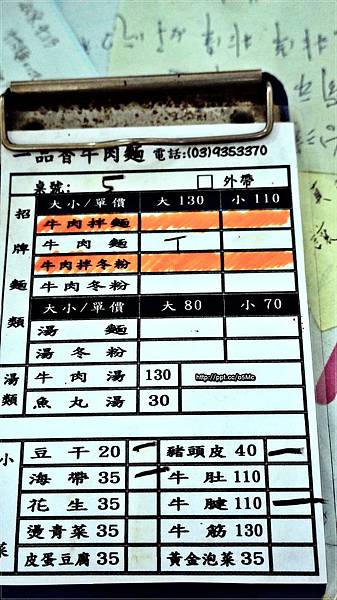 一品香牛肉麵 電話:(03)9353370
桌號: 5 □ 外帶
招牌麵類
大小/單價 大 130 小 110
牛肉拌麵
牛肉麵 一
牛肉拌冬粉
牛肉冬粉
大小/單價 大 80 小 70
湯麵
湯冬粉
湯類
牛肉湯 130 http://ppt.cc/o5Mc
魚丸湯 30
小菜
豆干 20 一 豬頭皮 40 一
海帶 35 一 牛肚 110
花生 35 牛腱 110 一
燙青菜 35 牛筋 130
皮蛋豆腐 35 黃金泡菜 35